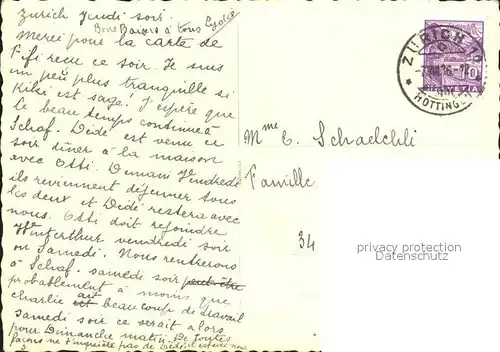 Zurich Jeudi soir.
Bons Baisers à tous
Merci pour la carte de
Fifi reçue ce soir. Je suis
un peu plus tranquille si
Kiki est sage! J'espère que
le beau temps continue à
Schaf. Dédé est venu ce
soir dîner à la maison
avec Otti. Demain Vendredi
ils reviennent déjeuner tous
les deux et Dédé restera avec
nous. Otti doit rejoindre
Winterthur vendredi soir
ou Samedi. Nous rentrerons
à Schaf. samedi soir peut-être
probablement à moins que
Charlie ait beaucoup de travail
Samedi soir ce serait alors
pour Dimanche matin. De toutes
façons ne t'inquiète pas de Dédé
Mme E. Schaelchli
Famille
34
ZÜRICH 10
HOTTINGEN
HELVETIA
10
privacy protection
Datenschutz